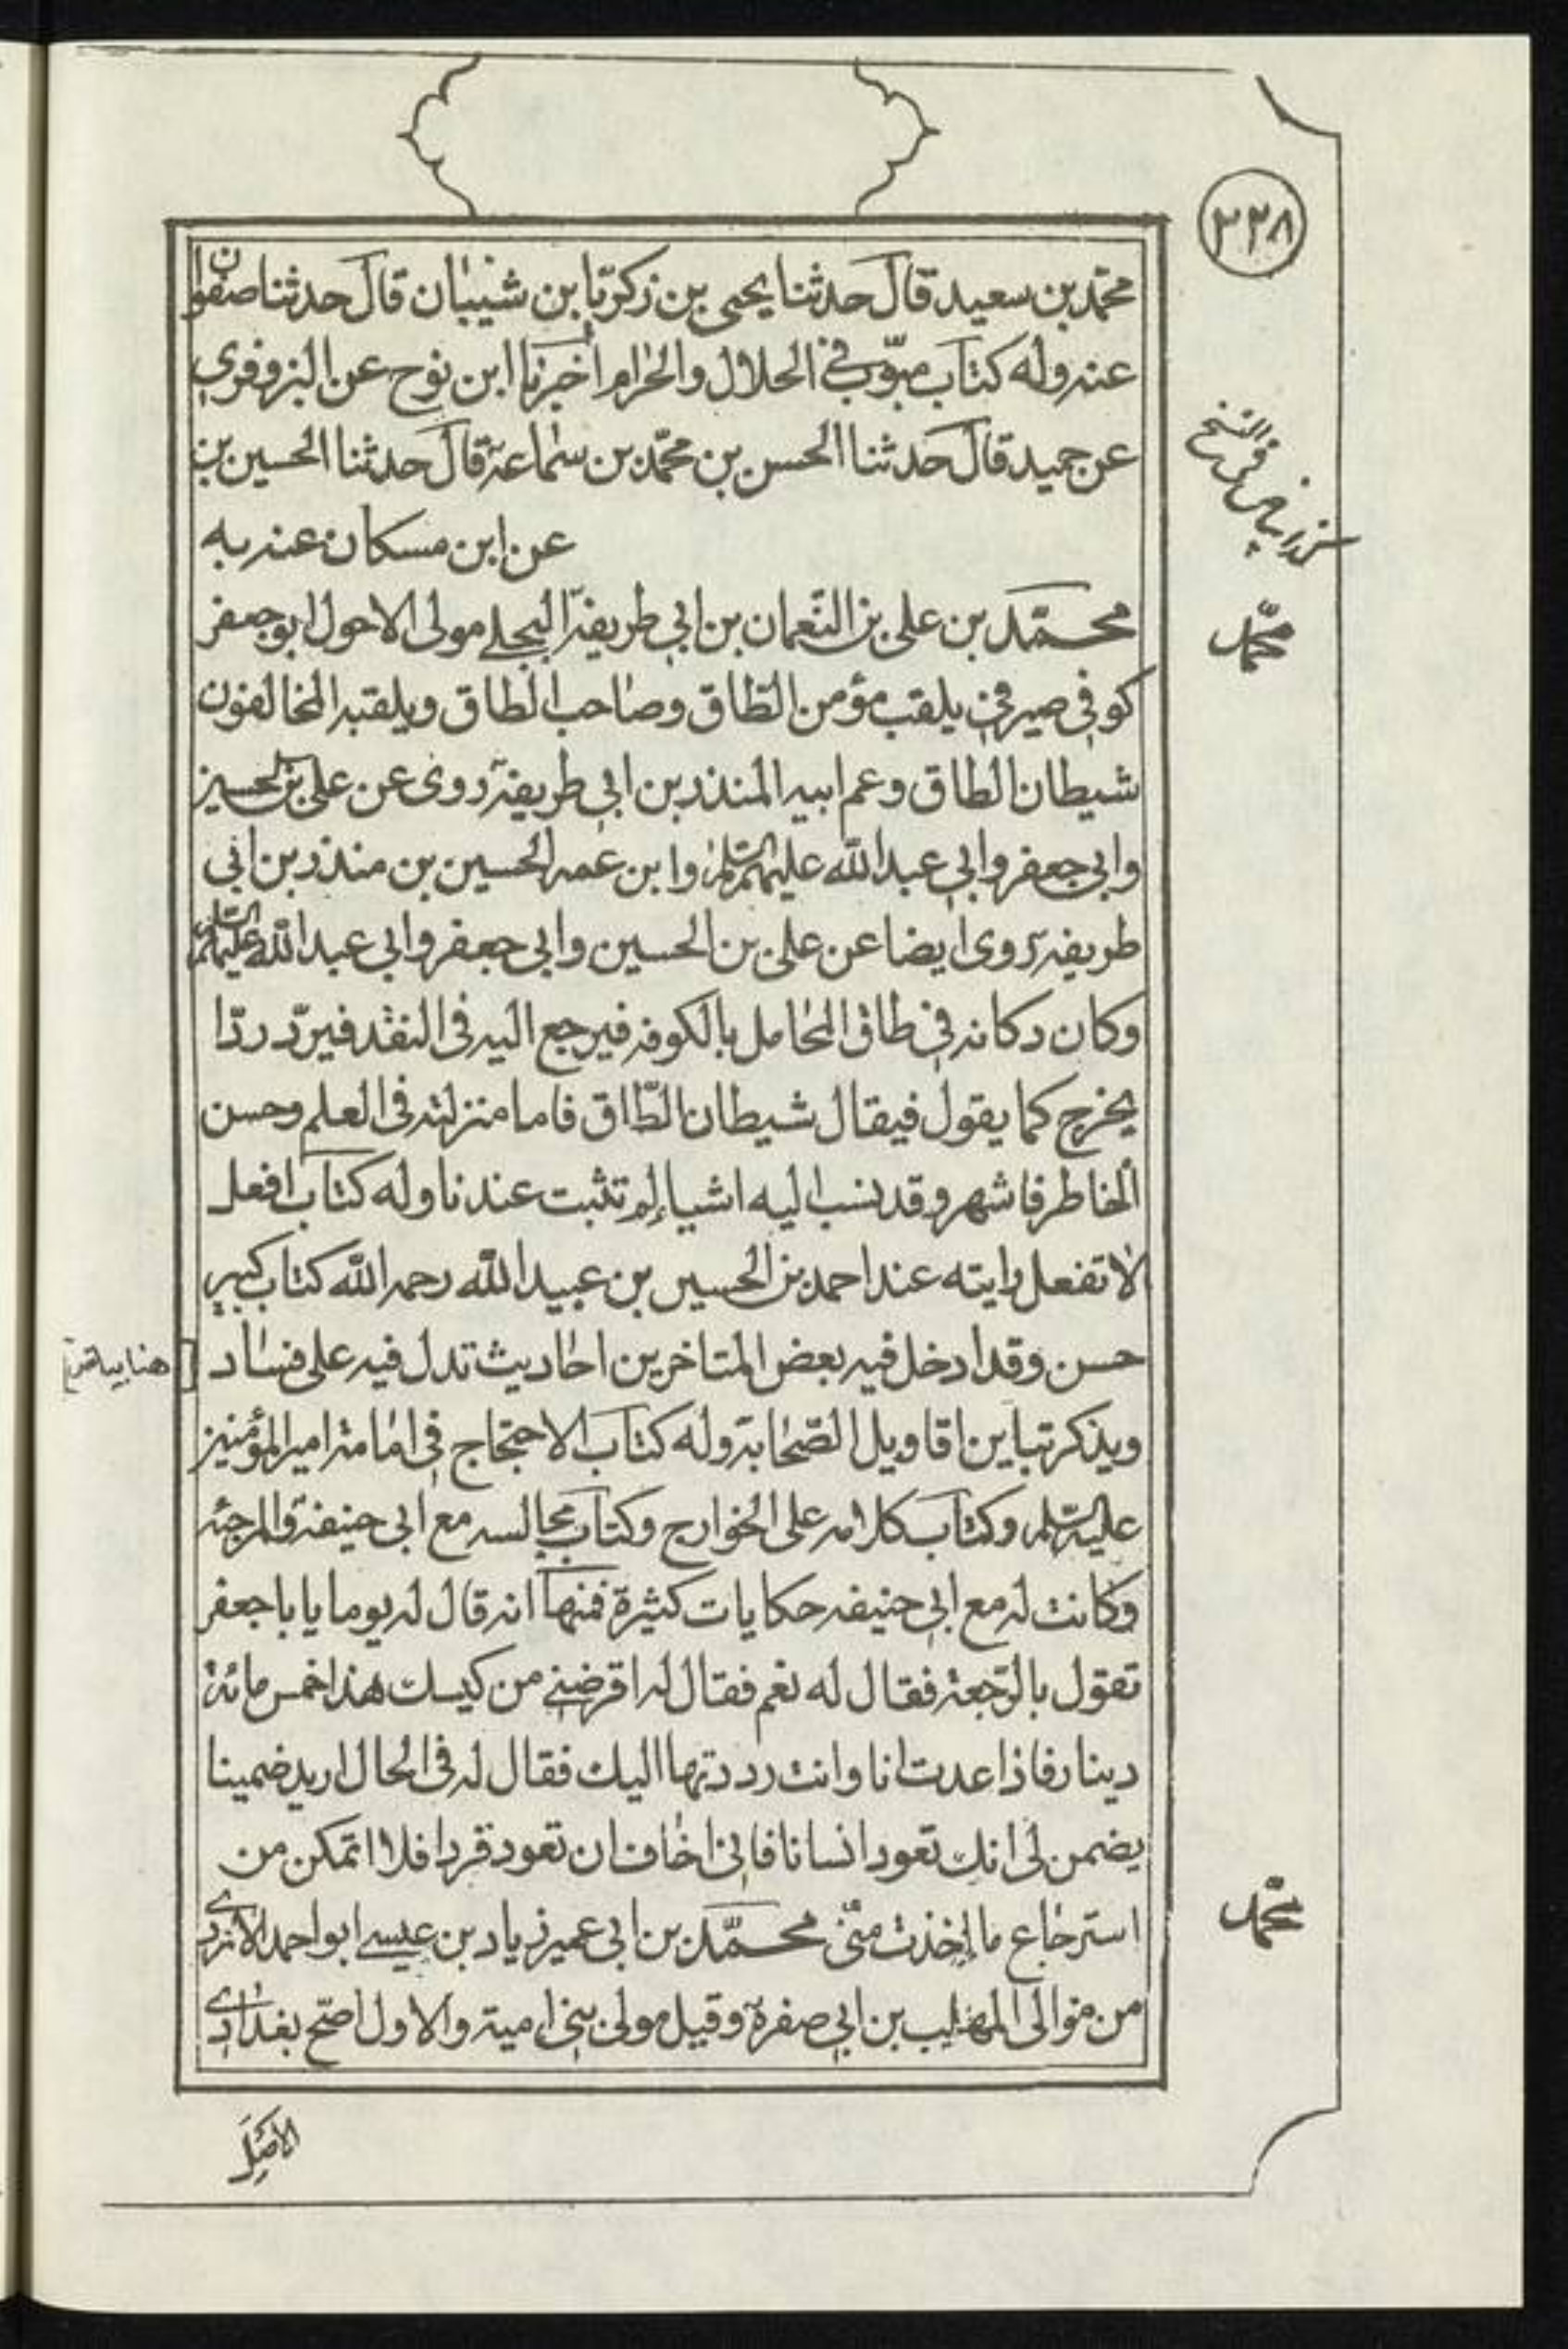 ٢٢٨
محمّد بن سعيد قال حدثنا يحيى بن زكريّا بن شيبان قال حدثنا صفوان
عنه وله كتاب مبوّب في الحلال والحرام أخبرنا ابن نوح عن البزوفري
عن حميد قال حدثنا الحسن بن محمّد بن سماعة قال حدثنا الحسين بن
عن ابن مسكان عنه به
محمّد بن علي بن النّعمان بن ابي طريفة البجلي مولى الاحول ابو جعفر
كوفي صيرفي يلقب مؤمن الطّاق وصاحب الطاق ويلقبه المخالفون
شيطان الطاق وعم ابيه المنذر بن ابي طريفة روى عن علي بن الحسين
وابي جعفر وابي عبد الله عليهم السّلم وابن عمه الحسين بن منذر بن ابي
طريفة روى ايضا عن علي بن الحسين وابي جعفر وابي عبد الله عليهم السّلم
وكان دكانه في طاق المحامل بالكوفه فيرجع اليه في النقد فيردّ ردّا
يخرج كما يقول فيقال شيطان الطّاق فاما منزلته في العلم وحسن
الخاطر فاشهر وقد نسب اليه اشياء لم تثبت عندنا وله كتاب افعل
لا تفعل رايته عند احمد بن الحسين بن عبيد الله رحمه الله كتاب كبير
حسن وقد ادخل فيه بعض المتاخرين احاديث تدل فيه على فساد
ويذكر تباين اقاويل الصّحابة وله كتاب الاحتجاج في امامة امير المؤمنين
عليه السّلم وكتاب كلامه على الخوارج وكتاب مجالسه مع ابي حنيفة والمرجئه
وكانت له مع ابي حنيفه حكايات كثيرة فمنها انه قال له يوما يا با جعفر
تقول بالرّجعة فقال له نعم فقال له اقرضني من كيسك هذا خمس مائة
دينار فاذا عدت انا وانت رددتها اليك فقال له في الحال اريد ضمينا
يضمن لى انك تعود انسانا فانى اخاف ان تعود قردا فلا اتمكن من
استرجاع ما اخذت منّى محمّد بن ابي عمير زياد بن عيسى ابو احمد الازدى
من موالى المهلب بن ابي صفرة وقيل مولى بني امية والاول اصّح بغدادى
محمّد
محمّد
الاصل